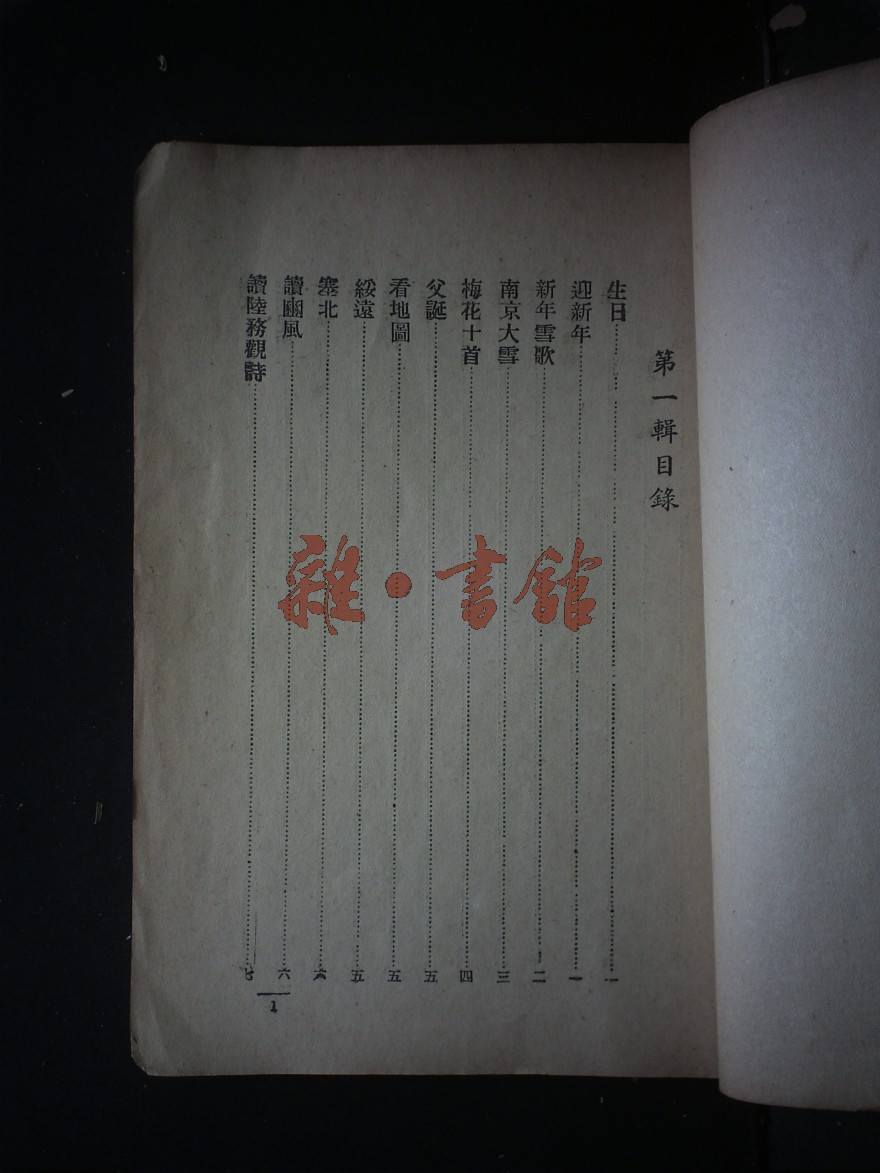 第一輯目錄
生日…………一
迎新年…………一
新年雪歌…………二
南京大雪…………三
梅花十首…………四
父誕…………五
看地圖…………五
綏遠…………五
塞北…………六
讀豳風…………六
讀陸務觀詩…………七
1
雜·書館